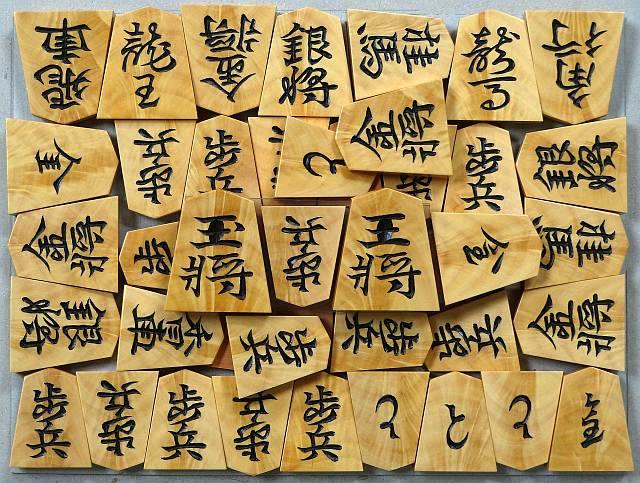 飛車
龍王
金将
銀将
桂馬
龍馬
角行
金
歩兵
歩兵
と
金将
歩兵
銀将
金将
王将
歩兵
王将
桂馬
銀将
香車
歩兵
歩兵
歩兵
金将
歩兵
歩兵
歩兵
歩兵
歩兵
と
と
と